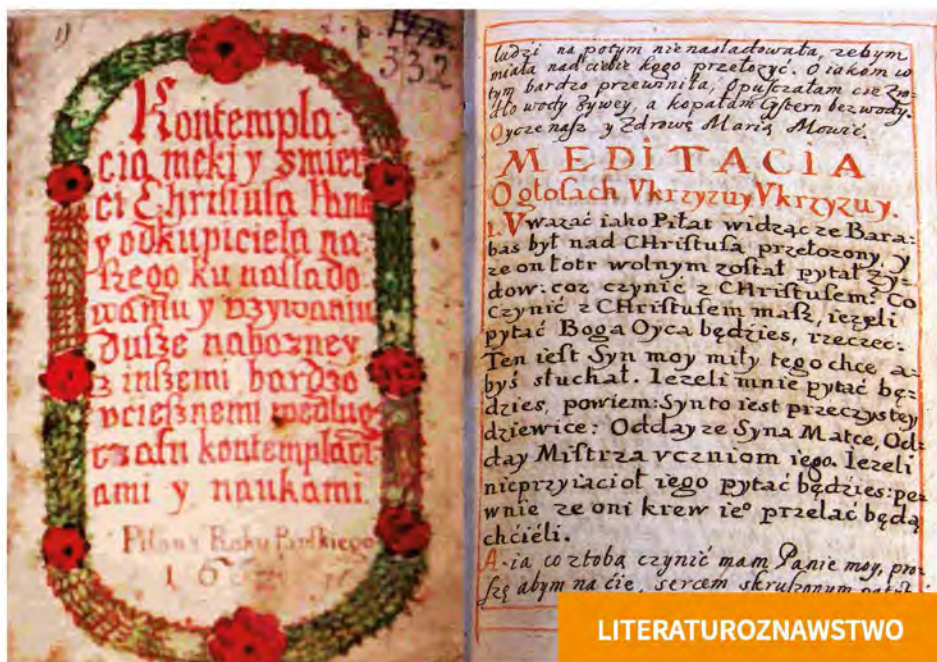 1)
332
Kontempla-
cia męki y śmier-
ci Christusa Pana
y odkupiciela na-
szego ku naslado-
waniu y vzywaniu
dusze nabozney
z inszemi bardzo
vciesznemi według
czasu kontemplaci-
ami y naukami.
Pisana Roku Pańskiego
ludzi na potym nie nasladowała, zebym
miała nad ciebie kogo przełozyć. O iakom w
tym bardzo przewiniła, Opuszczałam cie zrö-
dło wody zywey, a kopałam Cystern bez wody.
Oycze nasz y Zdrowę Marią Mowić.
MEDITACIA
O głosach Vkrzyzuy Vkrzyzuy.
1. Vwazać iako Piłat widząc ze Bara-
bas był nad CHristusa przełozony, y
ze on łotr wolnym został pytał Zy-
dow: coz czynić z CHristusem? Co
czynić z CHristusem masz, iezeli
pytać Boga Oyca będzies, rzecze:
Ten iest Syn moy miły tego chce a-
byś słuchał. Iezeli mnie pytać bę-
dzies, powiem: Syn to iest przeczystey
dziewice: Odday ze Syna Matce, Od-
day Mistrza vczniom iego. Iezeli
nieprzyiacioł iego pytać będzies: pe-
wnie ze oni krew ieº przelać będą
chćieli.
A ia co ztobą czynić mam Panie moy, pro-
szę abym na ćie, sercem skruszonym
LITERATUROZNAWSTWO